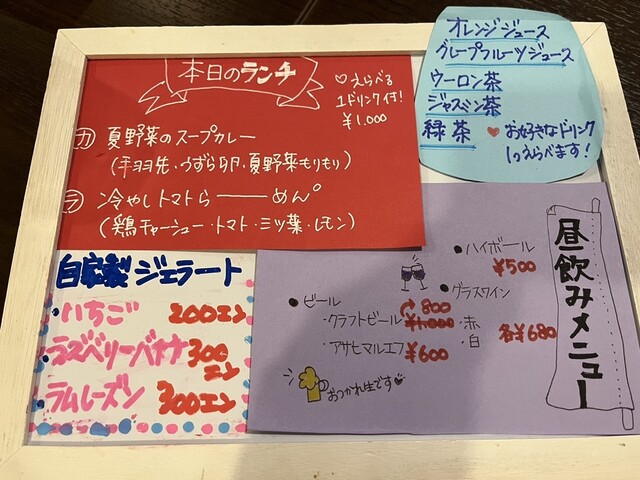 本日のランチ
♡えらべる
1ドリンク付!
¥1,000
カ 夏野菜のスープカレー
(手羽先・うずら卵・夏野菜もりもり)
ラ 冷やしトマトらーーめん。
(鶏チャーシュー・トマト・ミツ葉・レモン)
オレンジジュース
グレープフルーツジュース
ウーロン茶
ジャスミン茶
緑茶
♥お好きなドリンク
1つえらべます!
自家製ジェラート
・いちご 200エン
・ラズベリーバナナ 300エン
ラムレーズン 300エン
昼飲みメニュー
・ハイボール
¥500
・グラスワイン
・赤
・白
各¥680
●ビール
・クラフトビール ¥1,000 800
・アサヒマルエフ ¥600
おつかれ生です♡